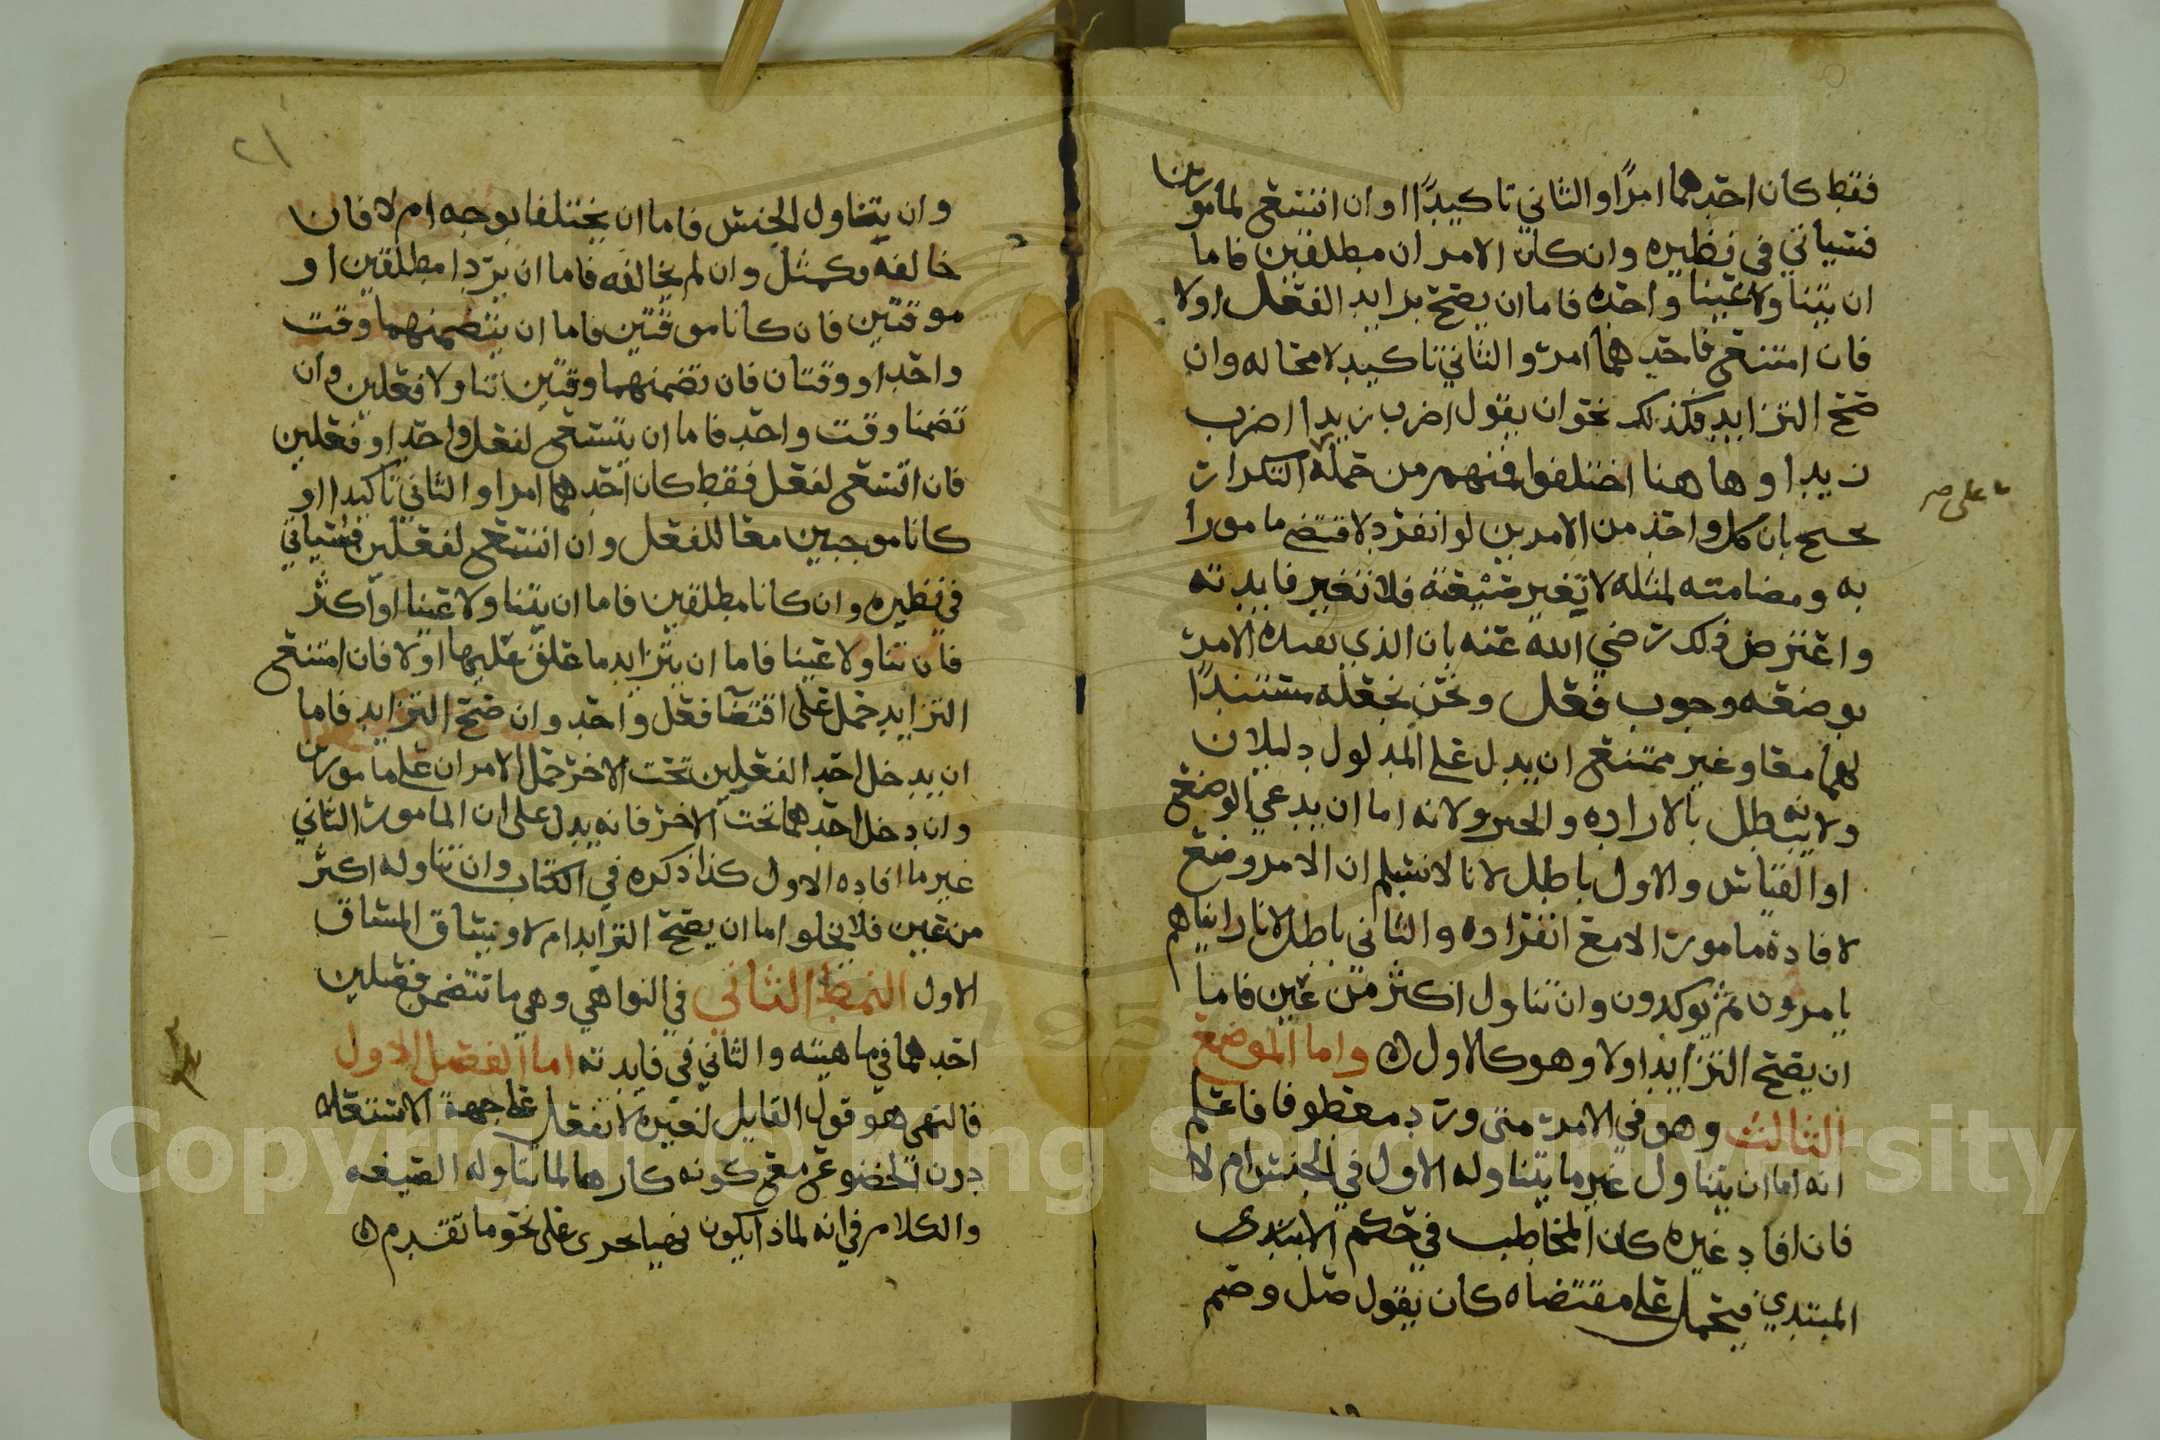 فقط كان احدهما امرًا والثاني تاكيدًا او ان اتسع لمامورين
فسياتي في نظيره وان كان الامران مطلقين فاما
ان يتناولا عينا واحده فاما ان يصح تزايد الفعل اولا
فان امتنع فاحدهما امر والثاني تاكيد لا محاله وان
صح التزايد فكذلك نحو ان يقول اضرب زيدا اضرب
زيدا وها هنا اختلفوا فمنهم من حمله التكرار
على ص
بان كل واحد من الامرين لو انفرد لاقتضى مامورا
به ومضامته لمثله لا تغير صيغته فلا تغير فايدته
واعترض ذلك رضي الله عنه بان الذي الامر
بوضعه وجوب فعل ونحن نجعله مستندًا
لهما معا وغير ممتنع ان يدل على المدلول دليلان
ولانه يبطل بالاراده والخبر ولانه اما ان يدعي الوضع
او القياس والاول باطل لانا لا نسلم ان الامر وضع
لافادة مامور الا مع انفراده والثاني باطل لانا رايناهم
يامرون ثم يوكدون وان تناول اكثر من عين فاما
ان يصح التزايد اولا وهو كالاول ٥ واما الموضع
الثالث وهو في الامر متى ورد معطوفا فاعلم
انه اما ان يتناول غير ما يتناوله الاول في الجنس ام لا
فان افاد غيره كان المخاطب في حكم الابتدى
المبتدي فيحمل على مقتضاه كان يقول صل وصم
٢١
وان يتناول الجنس فاما ان يختلفا بوجه ام لا فان
خالفه فكمثل وان لم يخالفه فاما ان يردا مطلقين او
موقتين فان كانا موقتين فاما ان يتضمنهما وقت
واحد او وقتان فان تضمنهما وقتين تناولا فعلين وان
تضمنا وقت واحد فاما ان يتسع لفعل واحد او فعلين
فان اتسع لفعل فقط كان احدهما امرا والثاني تاكيدا او
كانا موجبين معا للفعل وان اتسع لفعلين فسياتي
في نظيره وان كانا مطلقين فاما ان يتناولا عينا او اكثر
فان تناولا عينا فاما ان يتزايد ما علق عليها اولا فان امتنع
التزايد حمل على اقتضا فعل واحد وان صح التزايد فاما
ان يدخل احد الفعلين تحت الاخر حمل الامران على مامورين
وان دخل احدهما تحت الاخر فانه يدل على ان المامور الثاني
غير ما افاده الاول كذا ذكره في الكتاب وان تناوله اكثر
من عين فلا يخلوا اما ان يصح التزايد ام لا ويساق المساق
الاول النمط الثاني في النواهي وهي ما تتضمن فصلين
احدهما في ماهيته والثاني في فايدته اما الفصل الاول
فالنهي هو قول القايل لغيره لا تفعل على جهة الاستعلا
دون الخضوع مع كونه كارها لما يتناوله الصيغه
والكلام في انه لماذا يكون نهيا يجرى على نحو ما تقدم ٥